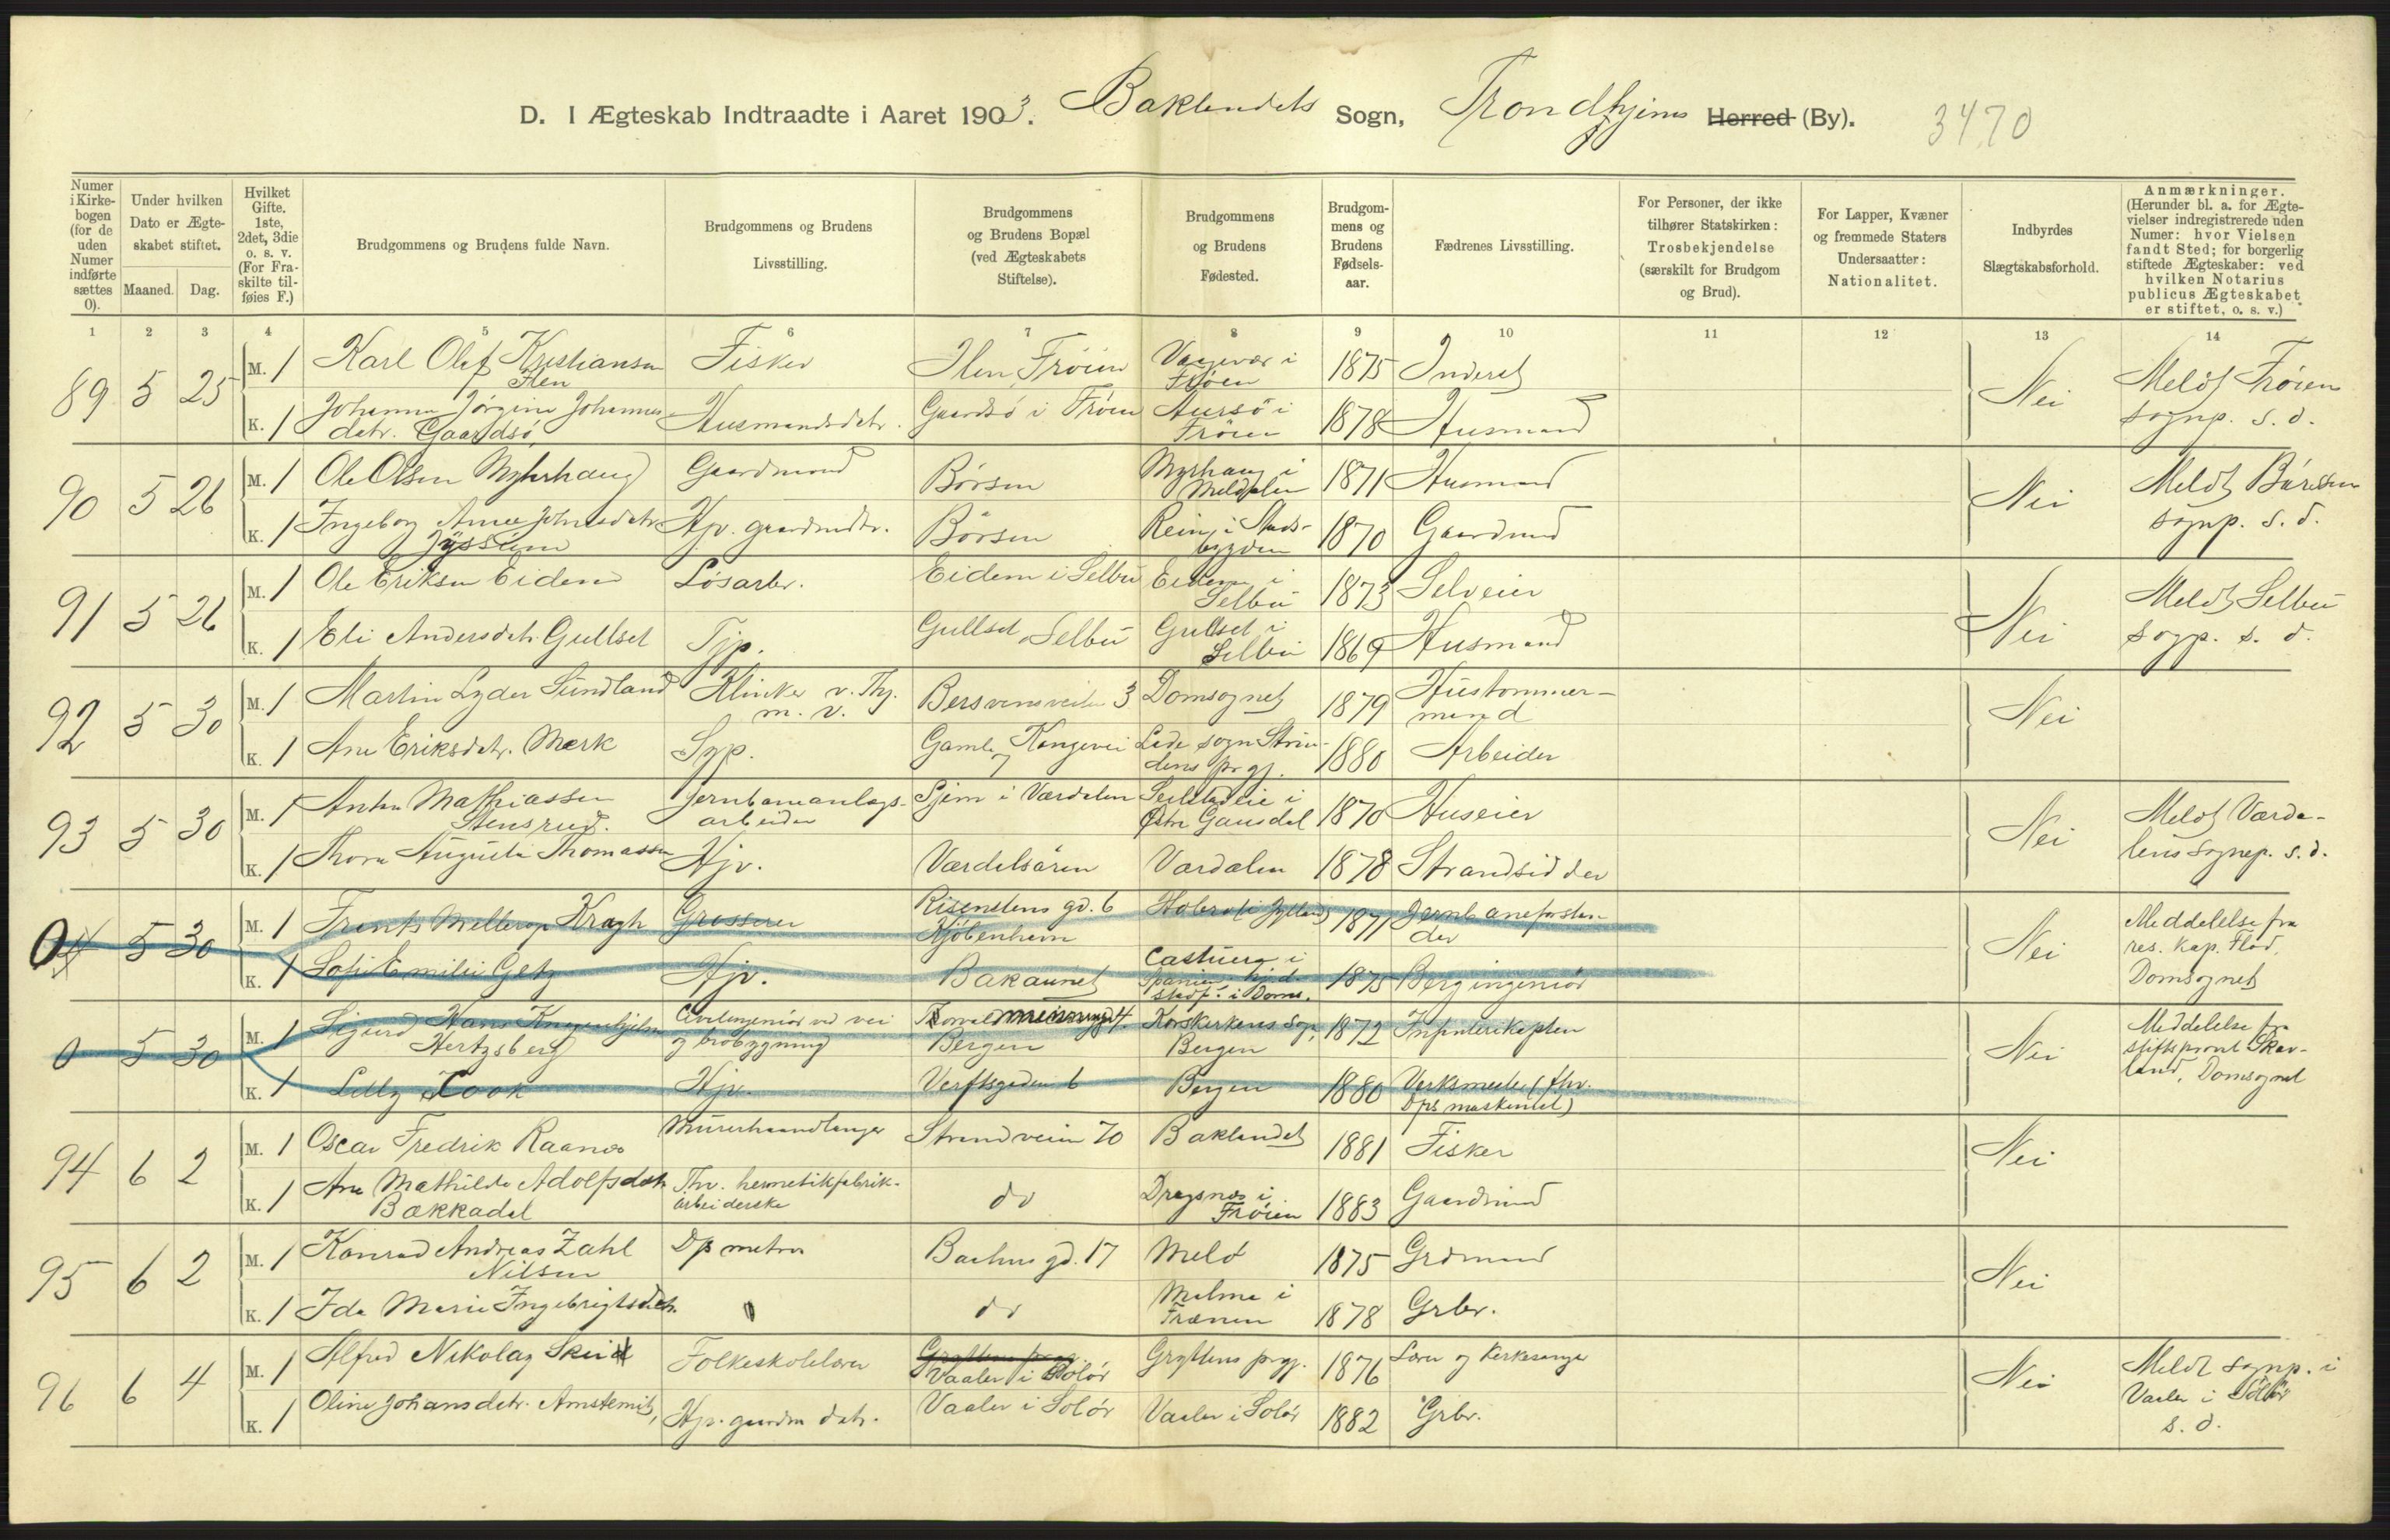 D. I Ægteskab Indtraadte i Aaret 1903. Baklandets Sogn, Trondhjems Herred (By). 3470
Numer i Kirkebogen (for de uden Numer indførte sættes 0).
Under hvilken Dato er Ægteskabet stiftet.
Maaned. Dag.
Hvilket Gifte. 1ste, 2det, 3die o. s. v. (For Fraskilte tilføies F.)
Brudgommens og Brudens fulde Navn.
Brudgommens og Brudens Livsstilling.
Brudgommens og Brudens Bopæl (ved Ægteskabets Stiftelse).
Brudgommens og Brudens Fødested.
Brudgommens og Brudens Fødselsaar.
Fædrenes Livsstilling.
For Personer, der ikke tilhører Statskirken: Trosbekjendelse (særskilt for Brudgom og Brud).
For Lapper, Kvæner og fremmede Staters Undersaatter: Nationalitet.
Indbyrdes Slægtskabsforhold.
Anmærkninger. (Herunder bl. a. for Ægtevielser indregistrerede uden Numer: hvor Vielsen fandt Sted; for borgerlig stiftede Ægteskaber: ved hvilken Notarius publicus Ægteskabet er stiftet, o. s. v.)
1 2 3 4 5 6 7 8 9 10 11 12 13 14
89 5 25 M. 1 Karl Olaf Kristiansen Ilen Fisker Ilen, Frøien Vaagevær i Frøien 1875 Inderst Nei Meldt Frøien sognp. s. d.
K. 1 Johanna Jørgine Johannesdatr. Gaardsø Husmandsdatr. Gaardsø i Frøien Aursø i Frøien 1878 Husmand
90 5 26 M. 1 Ole Olsen Myhrhaug Gaardmand Børsen Myrhaug i Meldalen 1871 Husmand Nei Meldt Børsen sognp. s. d.
K. 1 Ingeborg Anne Johnsdatr Jyssum Hjv. gaardmdtr. Børsen Rein i Stadsbygden 1870 Gaardmand
91 5 26 M. 1 Ole Eriksen Eidem Løsarbr. Eidem i Selbu Eidem i Selbu 1873 Selveier Nei Meldt Selbu sogp. s. d.
K. 1 Eli Andersdatr. Gullset Tjp. Gullset, Selbu Gullset i Selbu 1869 Husmand
92 5 30 M. 1 Martin Lyder Sundland Klinker v. Thj. m. v. Bersvensveiten 3 Domsognet 1879 Hustømmermand Nei
K. 1 Ane Eriksdatr. Mærk Syp. Gamle Kongevei 7 Lade sogn Strindens prgj. 1880 Arbeider
93 5 30 M. 1 Anton Mathiassen Stensrud. Jernbaneanlægsarbeider Sjem i Værdalen i Østre Gausdal 1870 Huseier Nei Meldt Værdalens sognep. s. d.
K. 1 Thora Augusta Thomassen Hjv. Værdalsøren Værdalen 1878 Strandsidder
0 5 30 M. 1 Frants Mellerop Kragh Grosserer Risenstens gd. 6 Kjøbenhavn Hobro (i Jylland) 1871 Jernbaneforstander Nei Meddelelse fra res. kap. Flod, Domsognet
K. 1 Sofi Emilie Getz Hjv. Bakaunet Castuera i Spanien, hjd. i Doms. 1875 Bergingeniør
0 5 30 M. 1 Sigurd Hans Knagenhjelm Hertzsberg Civilingeniør ved vei og brobygning Bergen Korskirkens Sogn, Bergen 1872 Infanterikaptein Nei Meddelelse fra stiftsprovst Skavland, Domsognet
K. 1 Lilly Kook Hjv. Verftsgaden 6 Bergen 1880 Verksmester (thv. Dps maskinist)
94 6 2 M. 1 Oscar Fredrik Raanes Murerhaandlanger Strandveien 70 Baklandet 1881 Fisker Nei
K. 1 Ane Mathilde Adolfsdatr Bækkadal Thv. hermetikfabrikarbeiderske do Dragsnes i Frøien 1883 Gaardmand
95 6 2 M. 1 Konrad Andreas Zahl Nilsen Dp matros Bachusgd. 17 Melø 1875 Grdmand Nei
K. 1 Ida Marie Ingebrigtsdatr. do Malme i Frænen 1878 Grbr.
96 6 4 M. 1 Alfred Nikolay Skeid Folkeskolelærer Gryttens prgj. Vaaler i Solør Gryttens prgj. 1876 Lærer og Kirkesanger Nei Meldt sognp. i Vaaler i Solør s. d.
K. 1 Oline Johansdatr. Hjv. gaardm datr. Vaaler i Solør Vaaler i Solør 1882 Grbr.